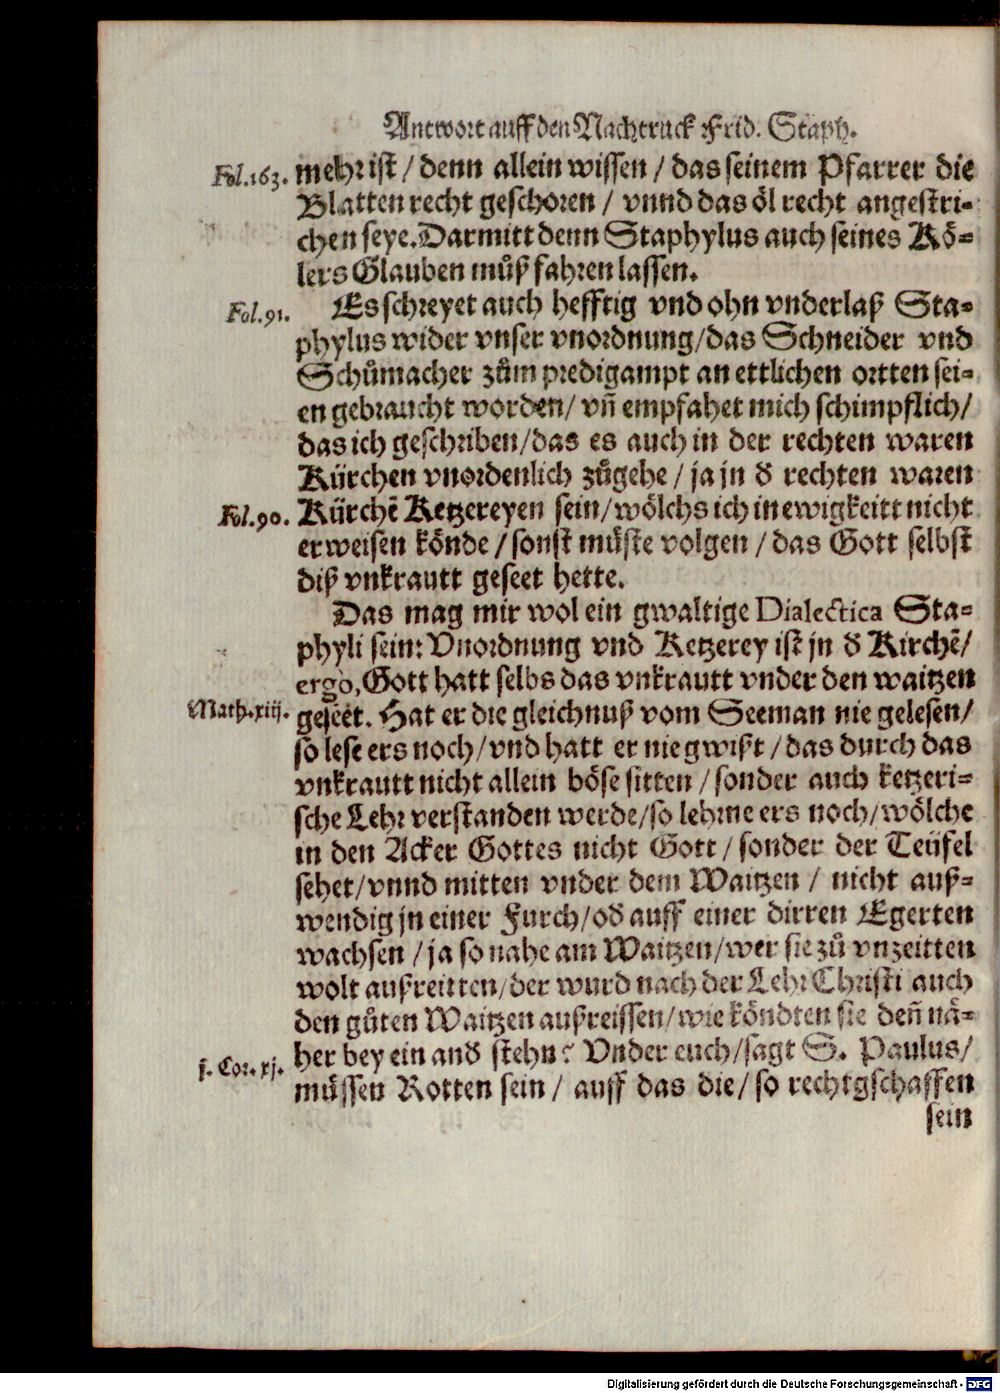 Antwort auff den Nachtruck Frid. Staph.
Fol.163. mehr ist / denn allein wissen / das seinem Pfarrer die
Blatten recht geschoren / vnnd das öl recht angestri-
chen seye. Darmitt denn Staphylus auch seines Kö-
lers Glauben můß fahren lassen.
Fol.91. Es schreyet auch hefftig vnd ohn vnderlaß Sta-
phylus wider vnser vnordnung/das Schneider vnd
Schůmacher zům predigampt an ettlichen ortten sei-
en gebraucht worden/ vn̄ empfahet mich schimpflich/
das ich geschriben/das es auch in der rechten waren
Kürchen vnordenlich zůgehe / ja jn d̕ rechten waren
Fol.90. Kürchē Ketzereyen sein/wölchs ich in ewigkeitt nicht
erweisen könde / sonst müste volgen / das Gott selbst
diß vnkrautt geseet hette.
Das mag mir wol ein gwaltige Dialectica Sta-
phyli sein: Vnordnung vnd Ketzerey ist jn d̕ Kirchē/
ergo, Gott hatt selbs das vnkrautt vnder den waitzen
Math.xiij. geseet. Hat er die gleichnuß vom Seeman nie gelesen/
so lese ers noch/vnd hatt er nie gwißt / das durch das
vnkrautt nicht allein böse sitten / sonder auch ketzeri-
sche Lehr verstanden werde/so lehrne ers noch/wölche
in den Acker Gottes nicht Gott / sonder der Teüfel
sehet/vnnd mitten vnder dem Waitzen / nicht auß-
wendig jn einer Furch/od̕ auff einer dirren Egerten
wachsen / ja so nahe am Waitzen/wer sie zů vnzeitten
wolt außreitten/der wurd nach der Lehr Christi auch
den gůten Waitzen außreissen/wie köndten sie den̄ nä-
her bey ein and̕ stehn? Vnder euch/sagt S. Paulus/
j. Cor. xj. müssen Rotten sein / auff das die/ so rechtgschaffen
sein
Digitalisierung gefördert durch die Deutsche Forschungsgemeinschaft - DFG